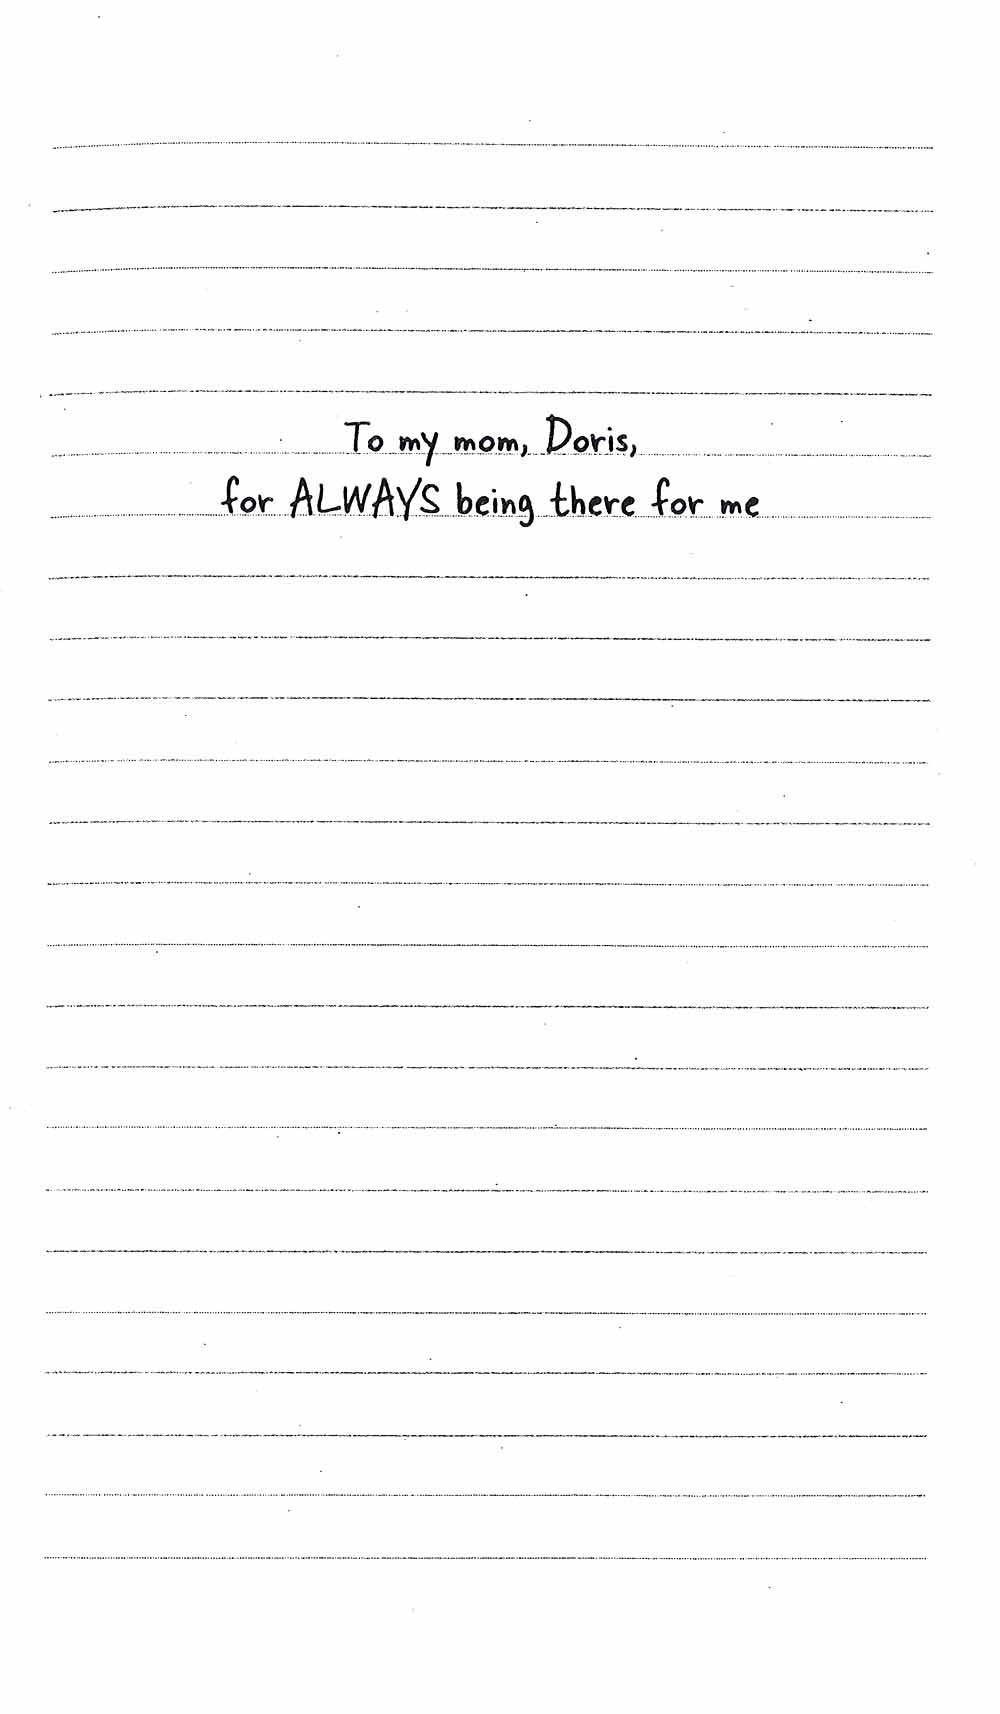 To my mom, Doris,
for ALWAYS being there for me